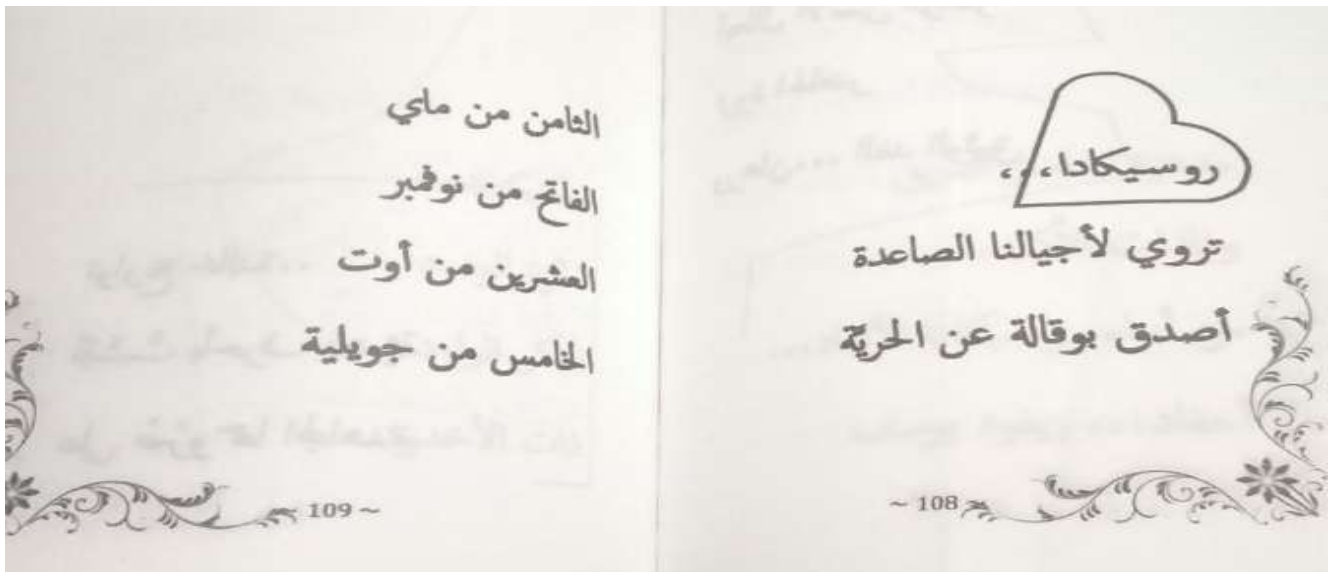 روسيكادا،،،
تروي لأجيالنا الصاعدة
أصدق بوقالة عن الحريّة
~ 108
الثامن من ماي
الفاتح من نوفمبر
العشرين من أوت
الخامس من جويلية
109 ~